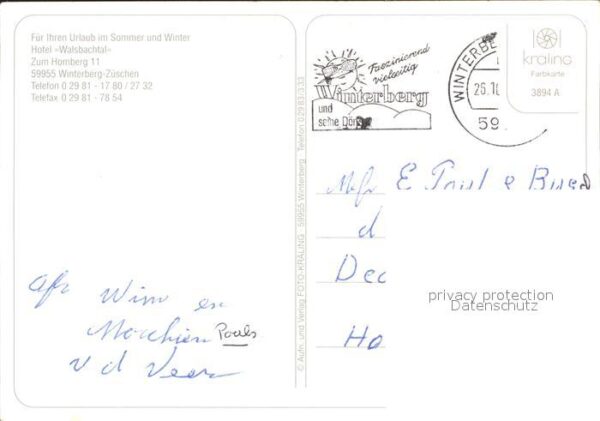 Für Ihren Urlaub im Sommer und Winter
Hotel »Walsbachtal«
Zum Homberg 11
59955 Winterberg-Züschen
Telefon 0 29 81 - 17 80 / 27 32
Telefax 0 29 81 - 78 54
© Aufn. und Verlag FOTO-KRALING · 59955 Winterberg · Telefon 0 29 83 / 3 33
Faszinierend
vielseitig
Winterberg
und
seine
WINTERBE
26.10
59
kraling
Farbkarte
3894 A
E
d
Dec
Ho
privacy protection
Datenschutz
Afz Wim en
Pouls
v d Veer